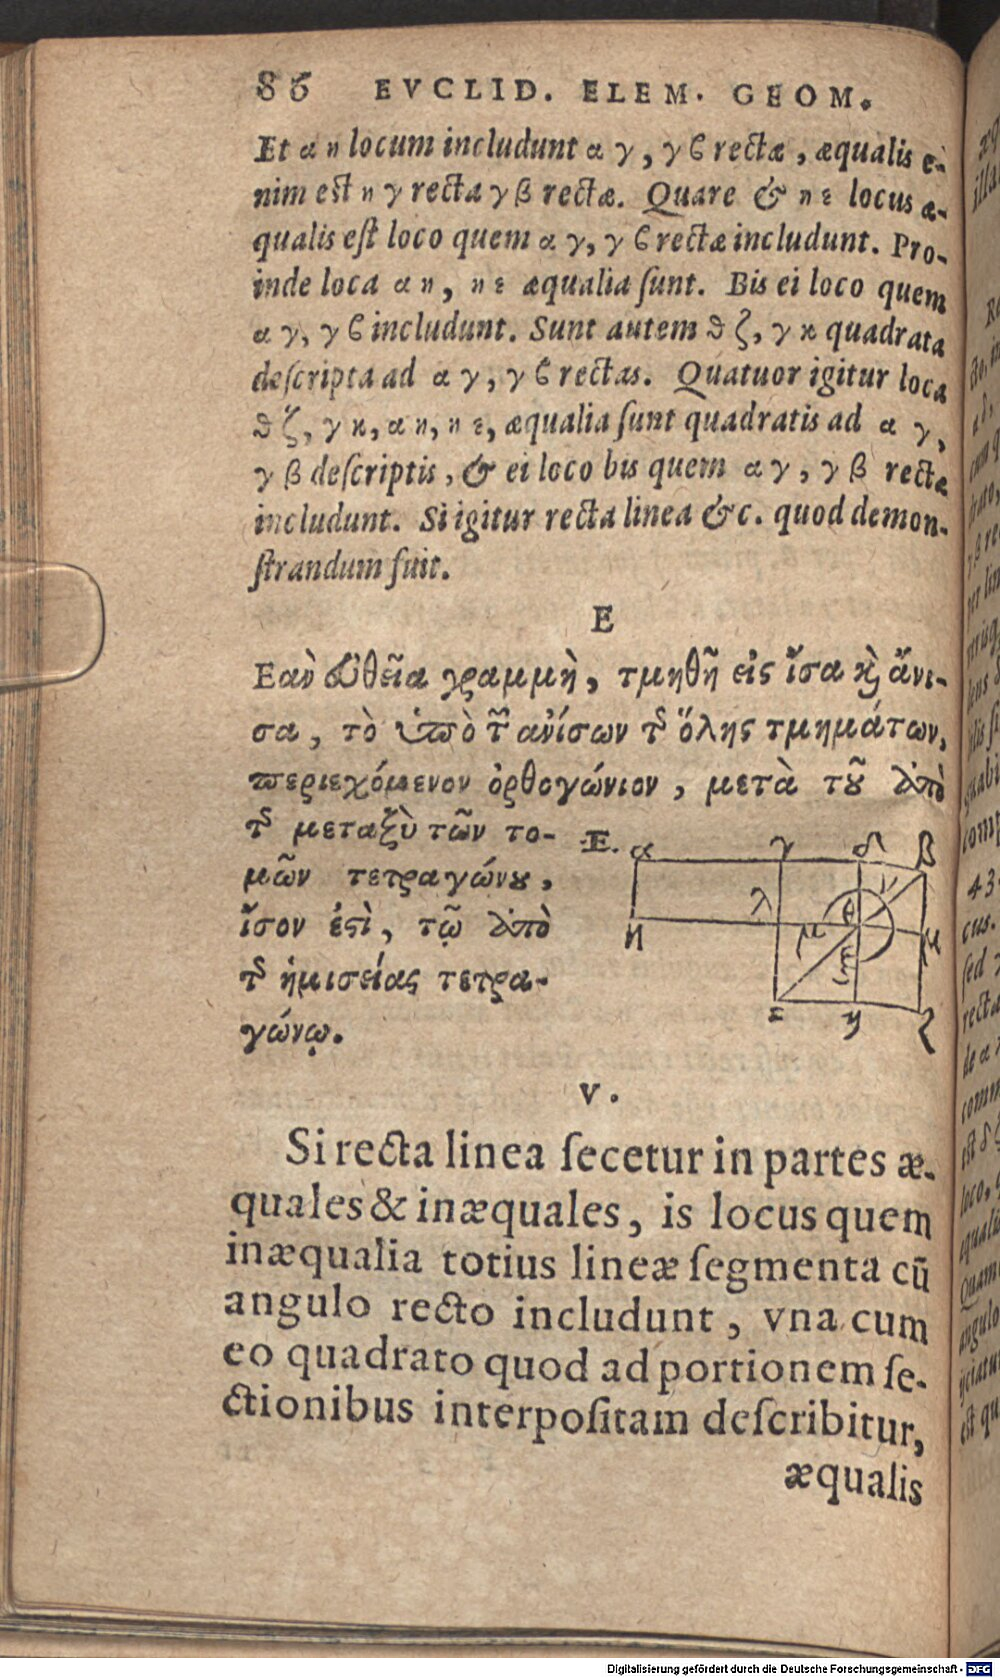 86 EVCLID. ELEM. GEOM.
Et α η locum includunt α γ, γ ϐ rectæ, æqualis e-
nim est η γ recta γ β rectæ. Quare & η ε locus æ-
qualis eſt loco quem α γ, γ ϐ rectæ includunt. Pro-
inde loca α η, η ε æqualia ſunt. Bis ei loco quem
α γ, γ ϐ includunt. Sunt autem ϑ ζ, γ κ quadrata
deſcripta ad α γ, γ ϐ rectas. Quatuor igitur loca
ϑ ζ, γ κ, α η, η ε, æqualia ſunt quadratis ad α γ,
γ β deſcriptis, & ei loco bis quem α γ, γ β rectæ
includunt. Si igitur recta linea &c. quod demon-
ſtrandum fuit.
E
Εαὺ ευθεῖα γραμμὴ, τμηθῆ εἰς ἴσα ϗ ἄνι-
σα, τὸ ὑπὸ τῶν ανίσων τῆς ὅλης τμημάτων,
περιεχόμενον ὀρθογώνιον, μετὰ τοῦ ἀπὸ
τῆς μεταξὺ τῶν το-
μῶν τετραγώνου,
ἴσον ἐϛὶ, τῷ ἀπὸ
τῆς ἡμισείας τετρα-
γώνῳ.
E. α γ δ β
λ θ ν
η μ ξ κ
ε η ζ
V.
Si recta linea ſecetur in partes æ-
quales & inæquales, is locus quem
inæqualia totius lineæ ſegmenta cū
angulo recto includunt, vna cum
eo quadrato quod ad portionem ſe-
ctionibus interpoſitam deſcribitur,
æqualis
Digitalisierung gefördert durch die Deutsche Forschungsgemeinschaft - DFG